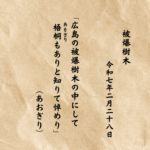 被爆樹木
令和七年二月二十八日
「広島の被爆樹木の中にして
梧桐もありと知りて悼めり」
あおぎり
（あおぎり）